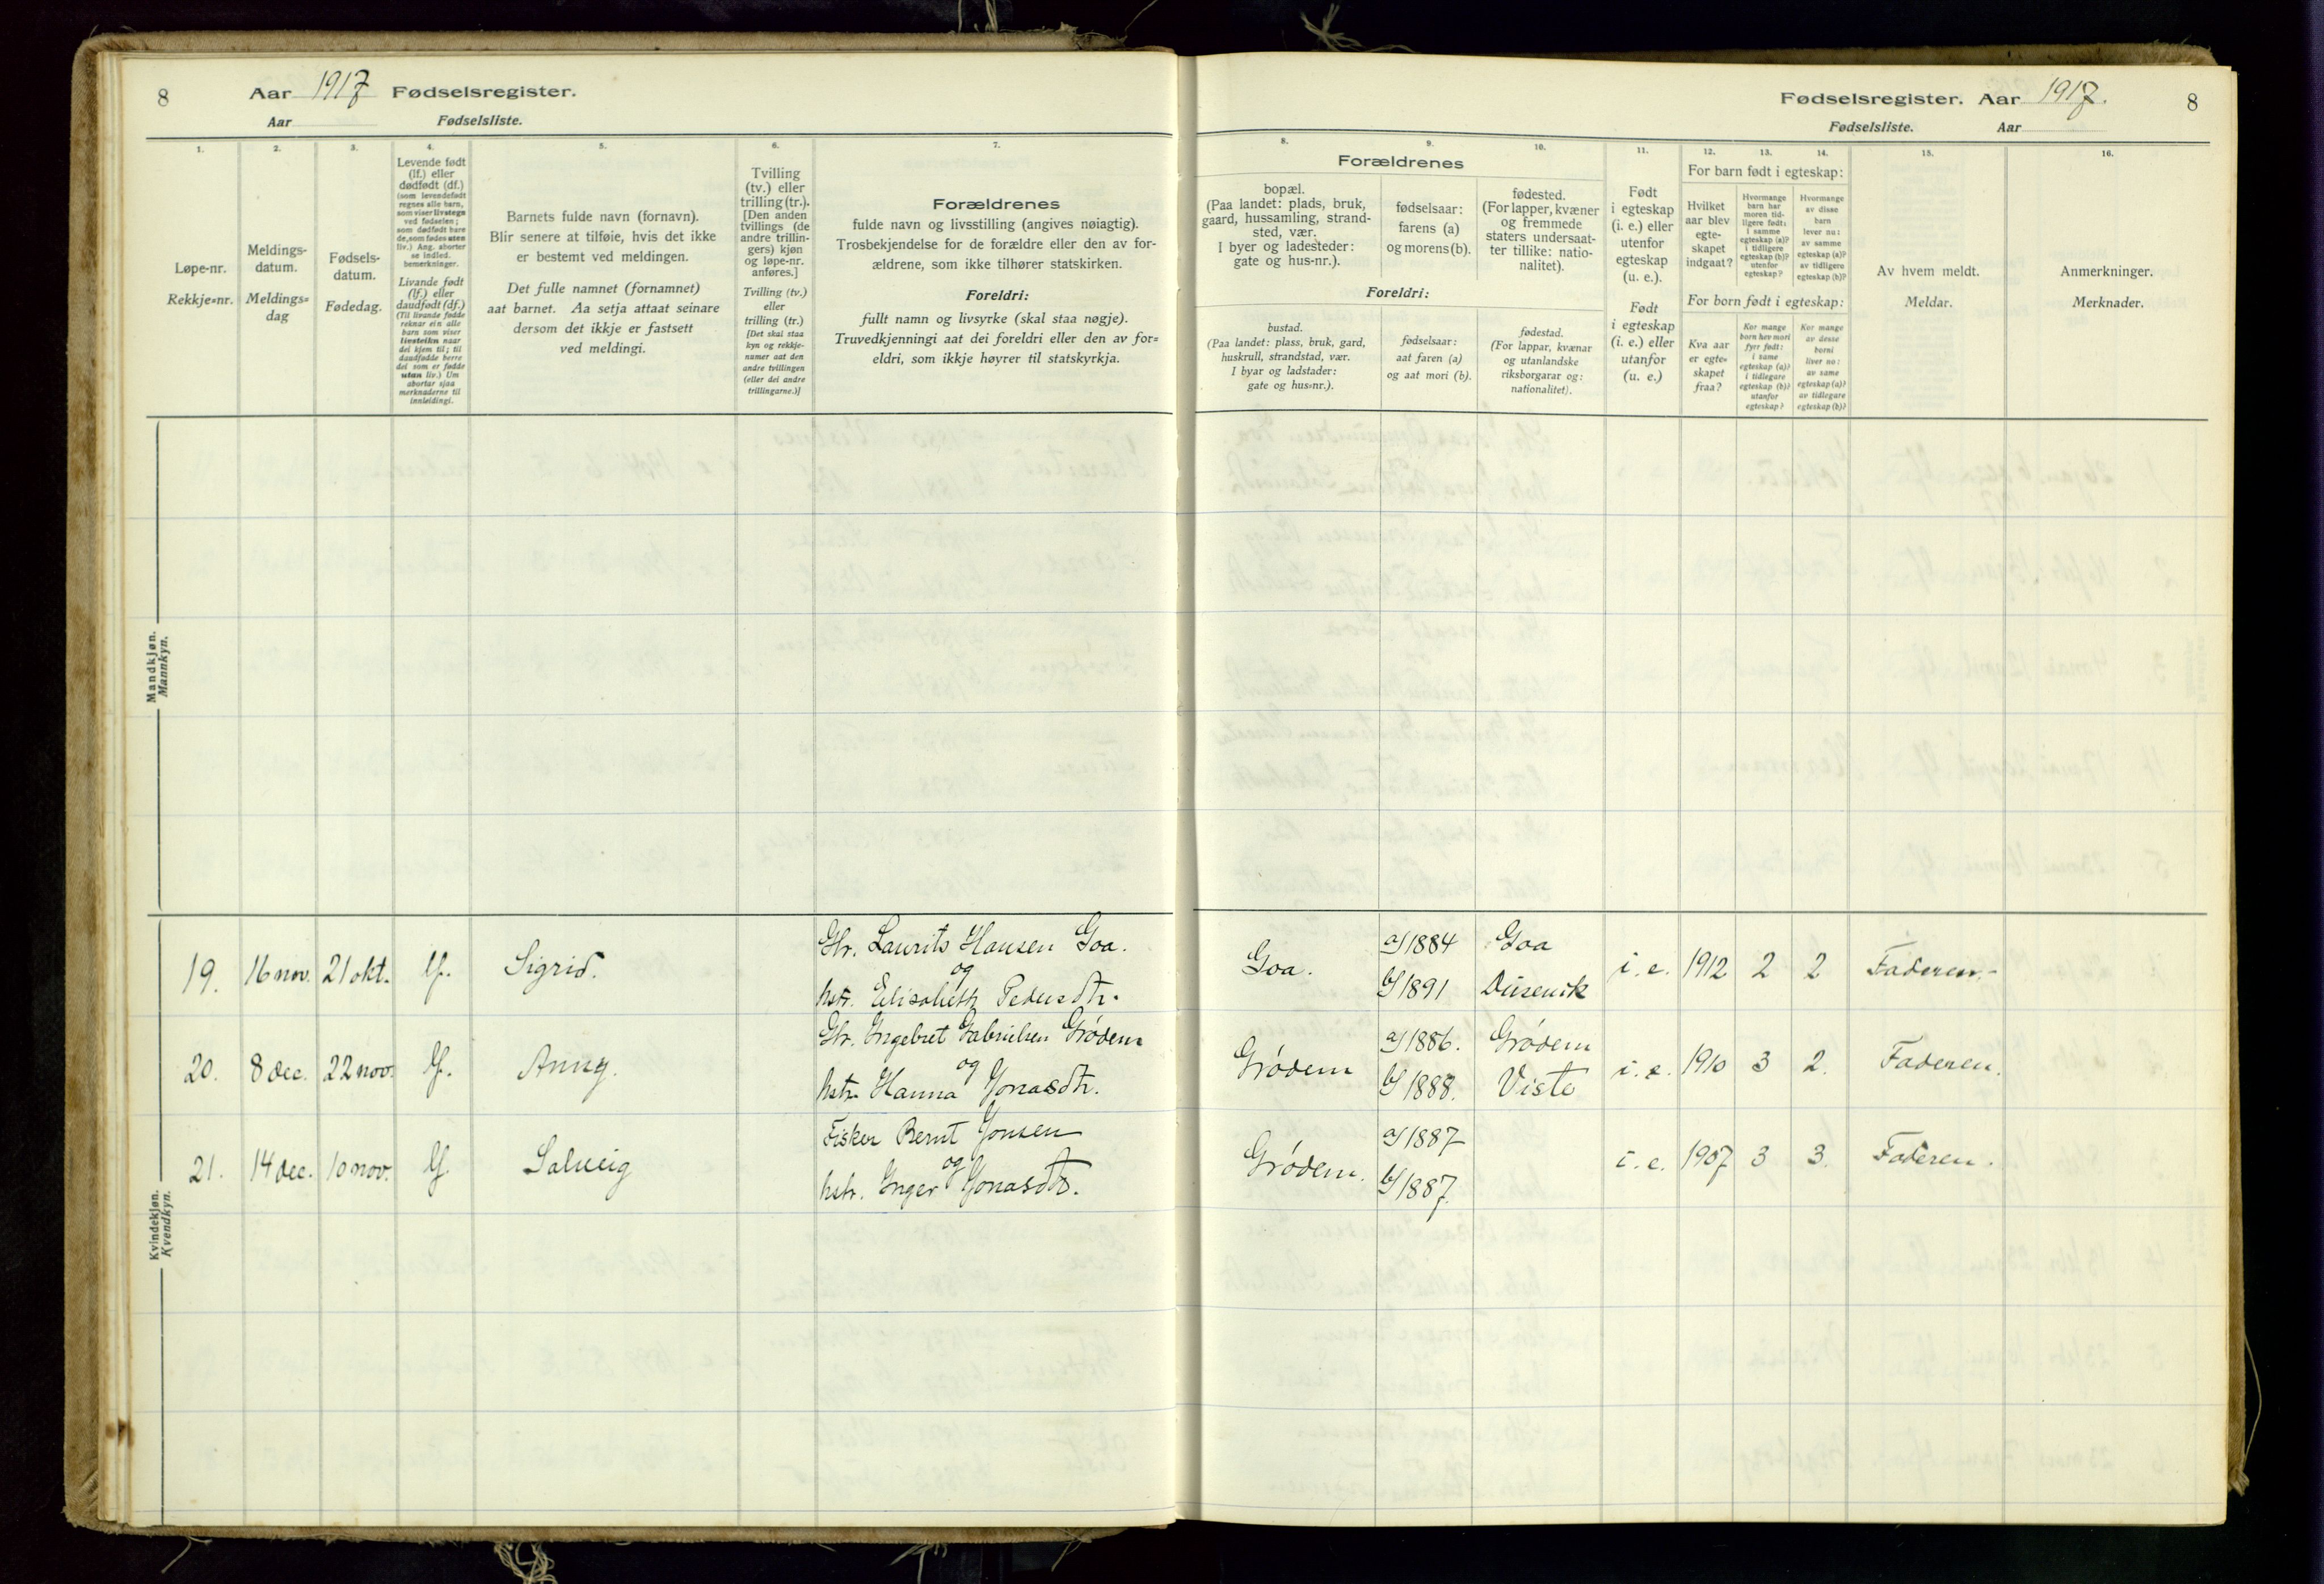 8
Aar 1917 Fødselsregister.
Aar Fødselsliste.
1.
Løpe-nr.
Rekkje=nr.
2.
Meldings-
datum.
Meldings=
dag
3.
Fødsels-
datum.
Fødedag.
4.
Levende født
(lf.) eller
dødfødt (df.)
(som levendefødt
regnes alle barn,
som viser livstegn
ved fødselen;
som dødfødt bare
de, som fødes uten
liv.) Ang. aborter
se indled.
bemerkninger.
Livande født
(lf.) eller
daudfødt (df.)
(Til livande fødde
reknar ein alle
barn som viser
livsteikn naar
dei kjem til; til
daudfødde berre
dei som er fødde
utan liv.) Um
abortar sjaa
merknaderne til
innleidingi.
5.
Barnets fulde navn (fornavn).
Blir senere at tilføie, hvis det ikke
er bestemt ved meldingen.
Det fulle namnet (fornamnet)
aat barnet. Aa setja attaat seinare
dersom det ikkje er fastsett
ved meldingi.
6.
Tvilling
(tv.) eller
trilling (tr.).
[Den anden
tvillings (de
andre trillin-
gers) kjøn
og løpe-nr.
anføres.]
Tvilling (tv.)
eller
trilling (tr.)
[Det skal staa
kyn og rekkje-
numer aat den
andre tvillingen
(eller dei andre
trillingarne.)]
7.
Forældrenes
fulde navn og livsstilling (angives nøiagtig).
Trosbekjendelse for de forældre eller den av for-
ældrene, som ikke tilhører statskirken.
Foreldri:
fullt namn og livsyrke (skal staa nøgje).
Truvedkjenningi aat dei foreldri eller den av for=
eldri, som ikkje høyrer til statskyrkja.
Mandkjøn.
Mannkyn.
19. 16 nov. 21 okt. lf. Sigrid. Gbr. Laurits Hansen Goa.
og
hstr. Elisabeth Pedersdtr.
20. 8 dec. 22 nov. lf. Anny. Gbr. Ingebret Gabrielsen Grødem
og
hstr. Hanna Jonasdtr.
21. 14 dec. 10 nov. lf. Solveig Fisker Bernt Jonsen
og
hstr. Inger Jonasdtr.
Kvindekjøn.
Kvendkyn.
Fødselsregister. Aar 1917. 8
Fødselsliste. Aar
8. 9. 10.
Forældrenes
bopæl.
(Paa landet: plads, bruk,
gaard, hussamling, strand-
sted, vær.
I byer og ladesteder:
gate og hus-nr.).
fødselsaar:
farens (a)
og morens (b).
fødested.
(For lapper, kvæner
og fremmede
staters undersaat-
ter tillike: natio-
nalitet).
Foreldri:
bustad.
(Paa landet: plass, bruk, gard,
huskrull, strandstad, vær.
I byar og ladstader:
gate og hus=nr.).
fødselsaar:
aat faren (a)
og aat mori (b).
fødestad.
(For lappar, kvænar
og utanlandske
riksborgarar og:
nationalitet).
11.
Født
i egteskap
(i. e.) eller
utenfor
egteskap
(u. e.).
Født
i egteskap
(i. e.) eller
utanfor
(u. e.)
12. 13. 14.
For barn født i egteskap:
Hvilket
aar blev
egte-
skapet
indgaat?
Hvormange
barn har
moren tid-
ligere født:
i samme
egteskap (a)?
i tidligere
egteskap (b)?
utenfor
egteskap?
Hvormange
av disse
barn
lever nu:
av samme
egteskap (a)?
av tidligere
egteskap (b)?
For born født i egteskap:
Kva aar
er egte=
skapet
fraa?
Kor mange
born hev mori
fyrr født:
i same
egteskap (a)?
i tidlegare
egteskap (b)?
utanfor
egteskap?
Kor mange
av desse
borni
liver no:
av same
egteskap (a)?
av tidlegare
egteskap (b)?
15.
Av hvem meldt.
Meldar.
16.
Anmerkninger.
Merknader.
Goa. a/1884 Goa
b/1891 Dusevik
i. e. 1912 2 2 Faderen.
Grødem a/1886. Grødem
b/1888. Viste
i. e. 1910 3 2. Faderen.
Grødem. a/1887
b/1887.
i. e. 1907 3 3. Faderen.